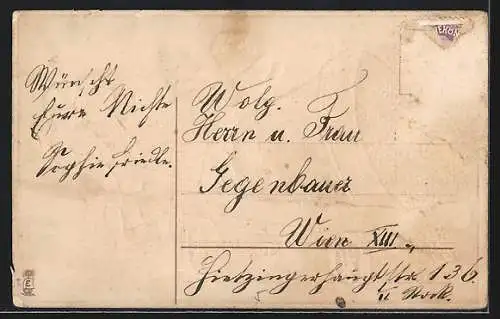 Wünscht
Eure Nichte
Sophie Friedle.
Wolg.
Herrn u. Frau
Gegenbauer
Wien XIII.,
Hietzingerhauptstr. 136
II Stock.
E